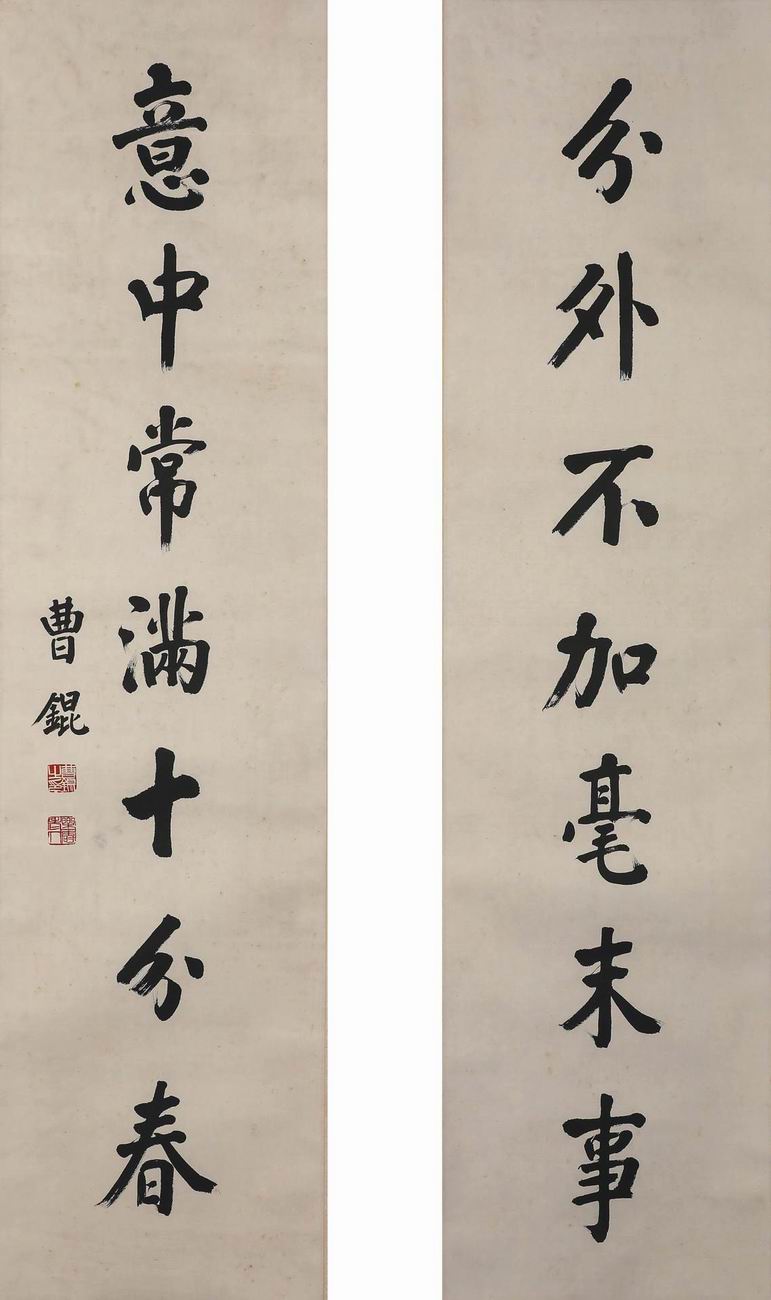 分外不加毫末事
意中常滿十分春
曹錕